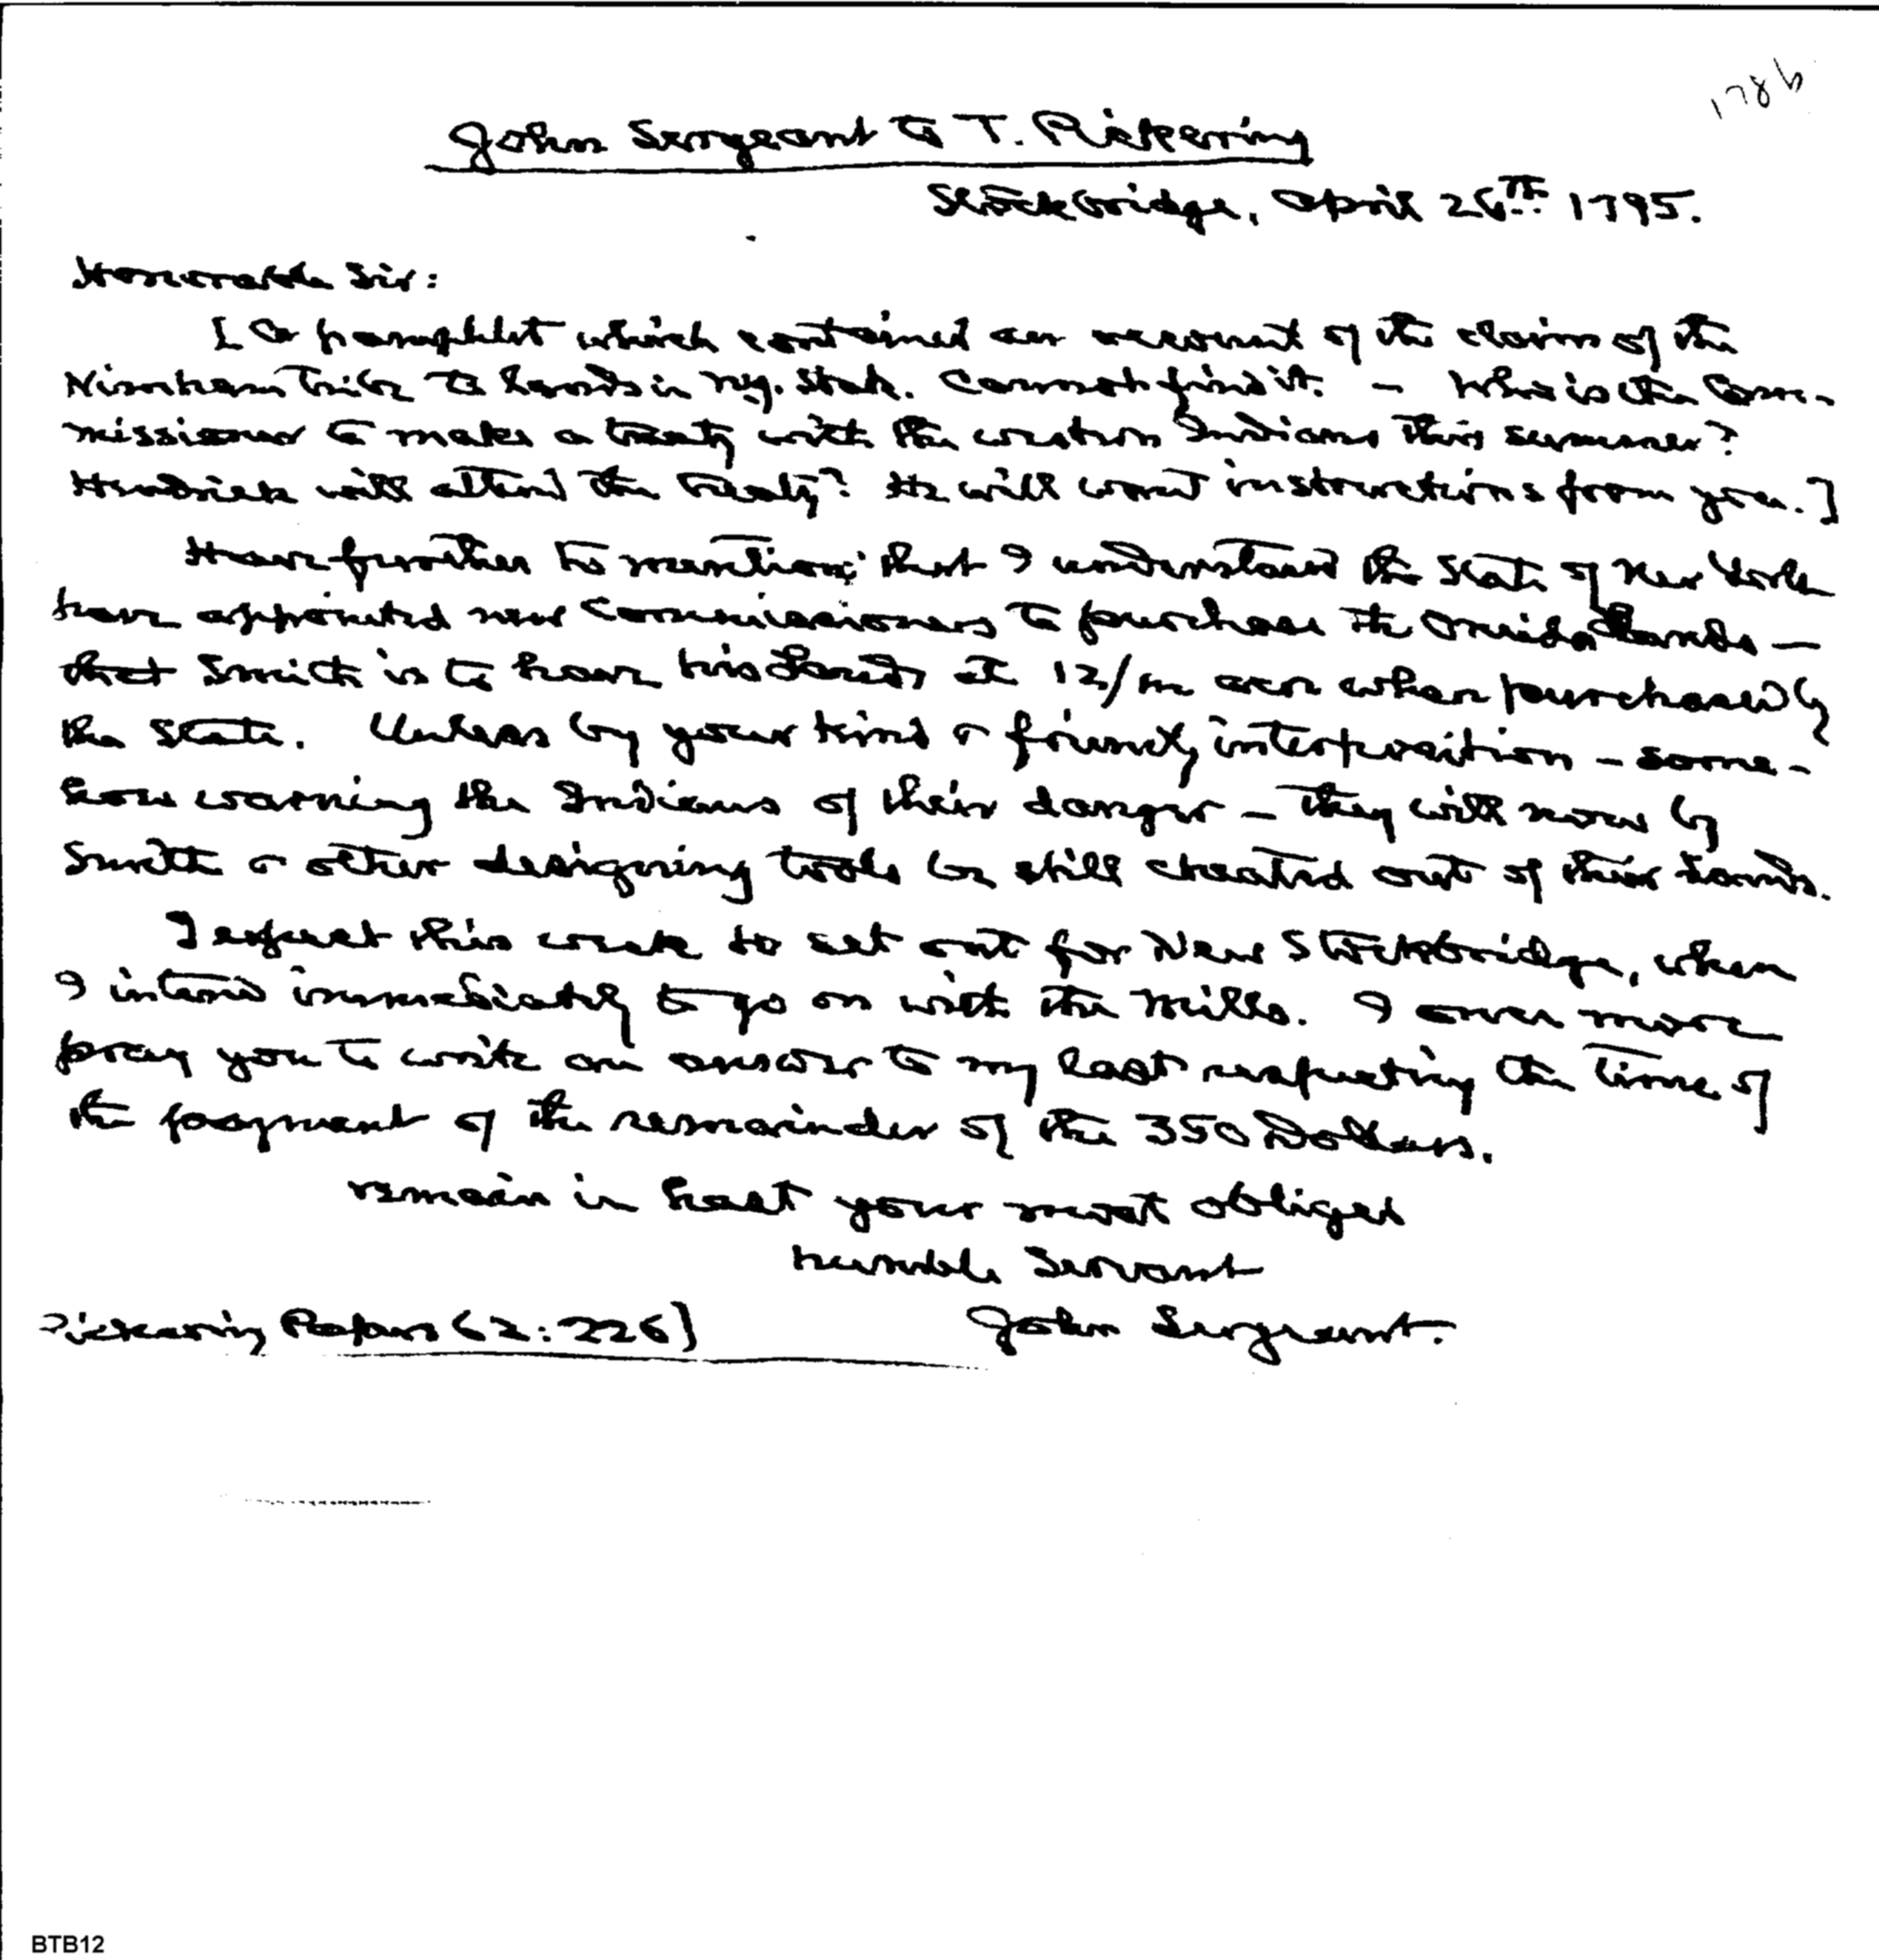 1786
John Sergeant to T. Pickering
Stockbridge, April 26th 1795.
Honorable Sir:
[ A pamphlet which contained an account of the claim of the
Nimham tribe to lands in N.Y. State. Cannot find it. - Who is the Com-
missioner to make a treaty with the western Indians this summer?
Hendrick will attend the treaty? He will want instructions from you. ]
Have further to mention; that I understand the State of New York
have appointed new Commissioners to purchase the Oneida Lands —
that Smith is to have his lands at 12/ acre when purchased by
the State. Unless by your kind & friendly interposition - some-
how warning the Indians of their danger - they will now by
Smith & other designing tools be still cheated out of their lands.
I expect this week to set out for New Stockbridge, when
I intend immediately to go on with the Mills. I once more
pray you to write an answer to my last respecting the time of
the payment of the remainder of the 350 Dollars.
remain in hast your most obliged
humble Servant
John Sergeant.
Pickering Papers 62: 226]
BTB12